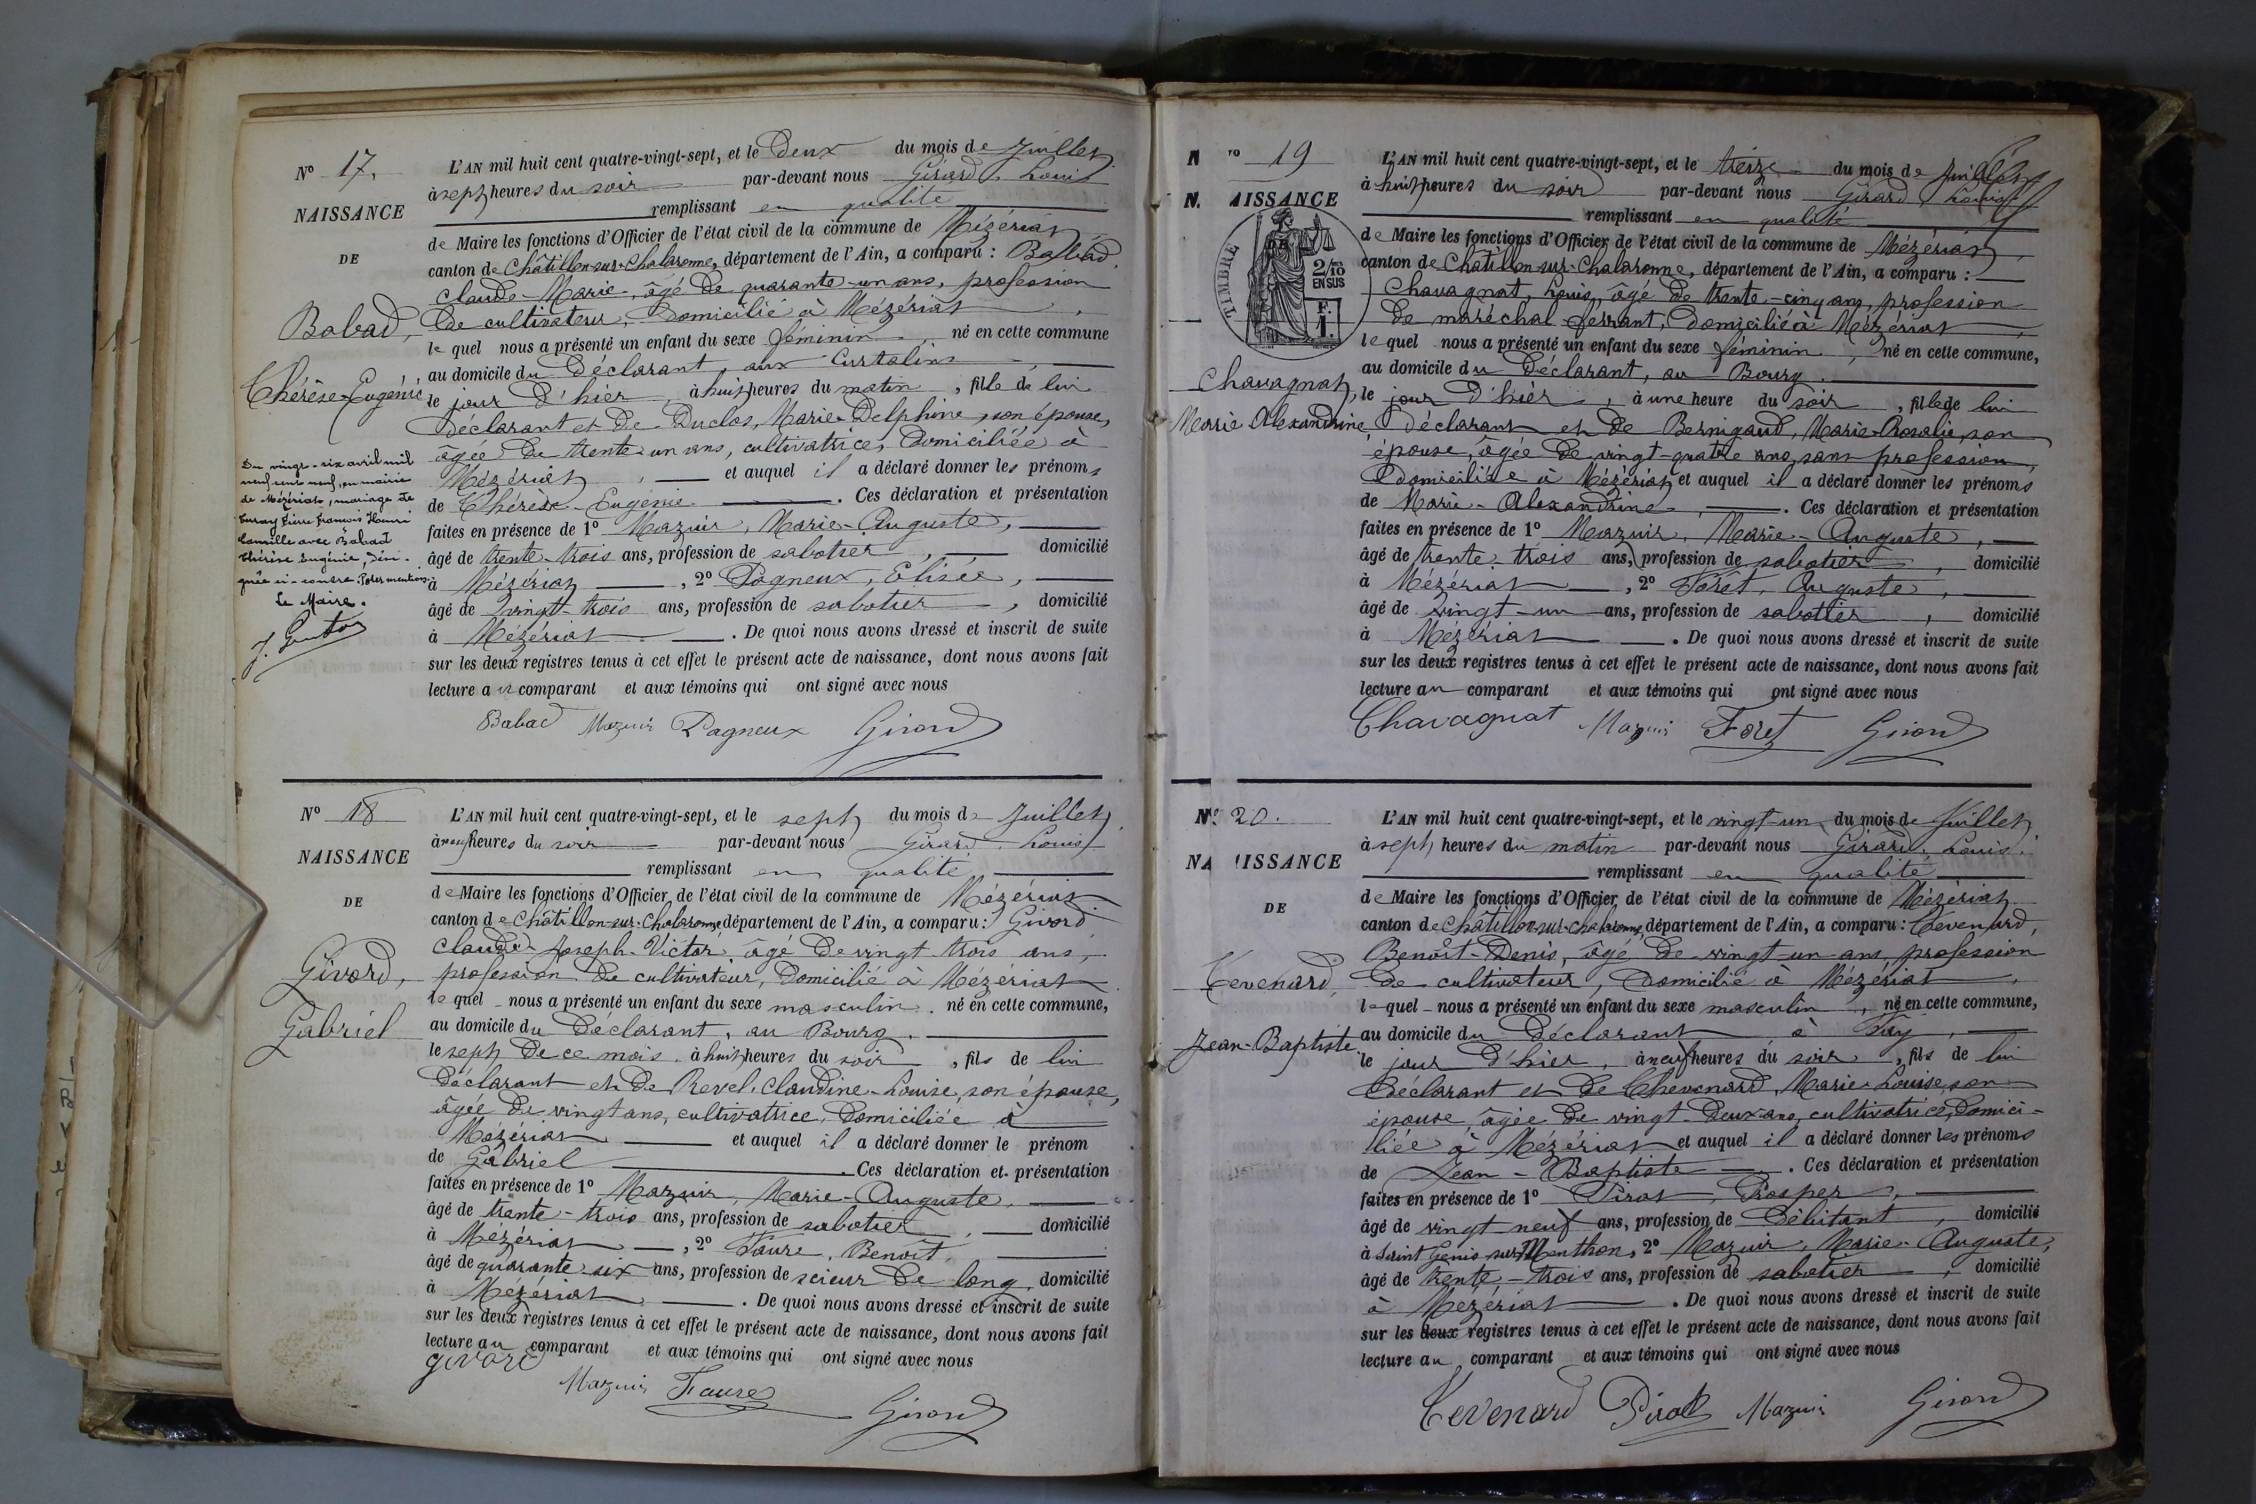 N° 17.
NAISSANCE
DE
Babad,
Thérèse-Eugénie
Du vingt-six avril mil
neuf cent neuf, en mairie
de Mézériat, mariage de
Pierre François Henri
Camille avec Babad
Thérèse Eugénie, dési-
gnée ci-contre. Pour mention.
Le Maire.
L'AN mil huit cent quatre-vingt-sept, et le Deux du mois de Juillet,
à sept heures du soir par-devant nous Girard, Louis
remplissant en qualité
de Maire les fonctions d'Officier de l'état civil de la commune de Mézériat,
canton de Châtillon-sur-Chalaronne, département de l'Ain, a comparu : Babad,
Claude-Marie, âgé de quarante-un ans, profession
de cultivateur, domicilié à Mézériat,
lequel nous a présenté un enfant du sexe féminin, né en cette commune
au domicile du Déclarant, aux Curtalins
le jour d'hier, à huit heures du matin, fille de lui
déclarant et de Duclos, Marie-Delphine, son épouse,
âgée de trente-un ans, cultivatrice, domiciliée à
Mézériat, et auquel il a déclaré donner les prénoms
de Thérèse-Eugénie. Ces déclaration et présentation
faites en présence de 1° Mazuir, Marie-Auguste,
âgé de trente-trois ans, profession de sabotier, domicilié
à Mézériat, 2° Pagneux, Elisée,
âgé de vingt-trois ans, profession de sabotier, domicilié
à Mézériat. De quoi nous avons dressé et inscrit de suite
sur les deux registres tenus à cet effet le présent acte de naissance, dont nous avons fait
lecture au comparant et aux témoins qui ont signé avec nous
Babad Mazuir Pagneux Girard
N° 18
NAISSANCE
DE
Givord,
Gabriel
L'AN mil huit cent quatre-vingt-sept, et le sept du mois de Juillet,
à neuf heures du soir par-devant nous Girard, Louis
remplissant en qualité
de Maire les fonctions d'Officier de l'état civil de la commune de Mézériat
canton de Châtillon-sur-Chalaronne département de l'Ain, a comparu : Givord,
Claude-Joseph-Victor, âgé de vingt-trois ans,
profession de cultivateur, domicilié à Mézériat
lequel nous a présenté un enfant du sexe masculin, né en cette commune,
au domicile du Déclarant, au Bourg,
le sept de ce mois, à huit heures du soir, fils de lui
déclarant et de Revel, Claudine-Louise, son épouse,
âgée de vingt ans, cultivatrice, domiciliée à
Mézériat et auquel il a déclaré donner le prénom
de Gabriel. Ces déclaration et présentation
faites en présence de 1° Mazuir, Marie-Auguste,
âgé de trente-trois ans, profession de sabotier, domicilié
à Mézériat, 2° Faure, Benoît,
âgé de quarante-six ans, profession de scieur de long, domicilié
à Mézériat. De quoi nous avons dressé et inscrit de suite
sur les deux registres tenus à cet effet le présent acte de naissance, dont nous avons fait
lecture au comparant et aux témoins qui ont signé avec nous
givord
Mazuir Faure Girard
N° 19
NAISSANCE
TIMBRE
2/10 EN SUS
F. 1
Chavagnat,
Marie Alexandrine
L'AN mil huit cent quatre-vingt-sept, et le treize du mois de Juillet
à huit heures du soir par-devant nous Girard, Louis
remplissant en qualité
de Maire les fonctions d'Officier de l'état civil de la commune de Mézériat,
canton de Châtillon-sur-Chalaronne, département de l'Ain, a comparu :
Chavagnat, Louis, âgé de trente-cinq ans, profession
de maréchal-ferrant, domicilié à Mézériat,
lequel nous a présenté un enfant du sexe féminin, né en cette commune,
au domicile du Déclarant, au Bourg.
le jour d'hier, à une heure du soir, fille de lui
déclarant et de Bernigaud, Marie-Rosalie, son
épouse, âgée de vingt-quatre ans, sans profession,
domiciliée à Mézériat et auquel il a déclaré donner les prénoms
de Marie-Alexandrine. Ces déclaration et présentation
faites en présence de 1° Mazuir, Marie-Auguste,
âgé de trente-trois ans, profession de sabotier, domicilié
à Mézériat, 2° Foret, Auguste,
âgé de vingt-un ans, profession de sabotier, domicilié
à Mézériat. De quoi nous avons dressé et inscrit de suite
sur les deux registres tenus à cet effet le présent acte de naissance, dont nous avons fait
lecture au comparant et aux témoins qui ont signé avec nous
Chavagnat Mazuir Foret Girard
N° 20.
NAISSANCE
DE
Tevenard,
Jean-Baptiste
L'AN mil huit cent quatre-vingt-sept, et le vingt-un du mois de Juillet,
à sept heures du matin par-devant nous Girard, Louis,
remplissant en qualité
de Maire les fonctions d'Officier de l'état civil de la commune de Mézériat
canton de Châtillon-sur-Chalaronne, département de l'Ain, a comparu : Tevenard,
Benoît-Denis, âgé de vingt-un ans, profession
de cultivateur, domicilié à Mézériat,
lequel nous a présenté un enfant du sexe masculin, né en cette commune,
au domicile du Déclarant à Fay,
le jour d'hier, à neuf heures du soir, fils de lui
déclarant et de Chevenard, Marie-Louise, son
épouse, âgée de vingt-deux ans, cultivatrice, domici-
liée à Mézériat et auquel il a déclaré donner les prénoms
de Jean-Baptiste. Ces déclaration et présentation
faites en présence de 1° Pirat, Prosper,
âgé de vingt neuf ans, profession de Débitant, domicilié
à Saint Genis sur Menthon, 2° Mazuir, Marie-Auguste,
âgé de trente-trois ans, profession de sabotier, domicilié
à Mézériat. De quoi nous avons dressé et inscrit de suite
sur les deux registres tenus à cet effet le présent acte de naissance, dont nous avons fait
lecture au comparant et aux témoins qui ont signé avec nous
Tevenard Pirat Mazuir Girard